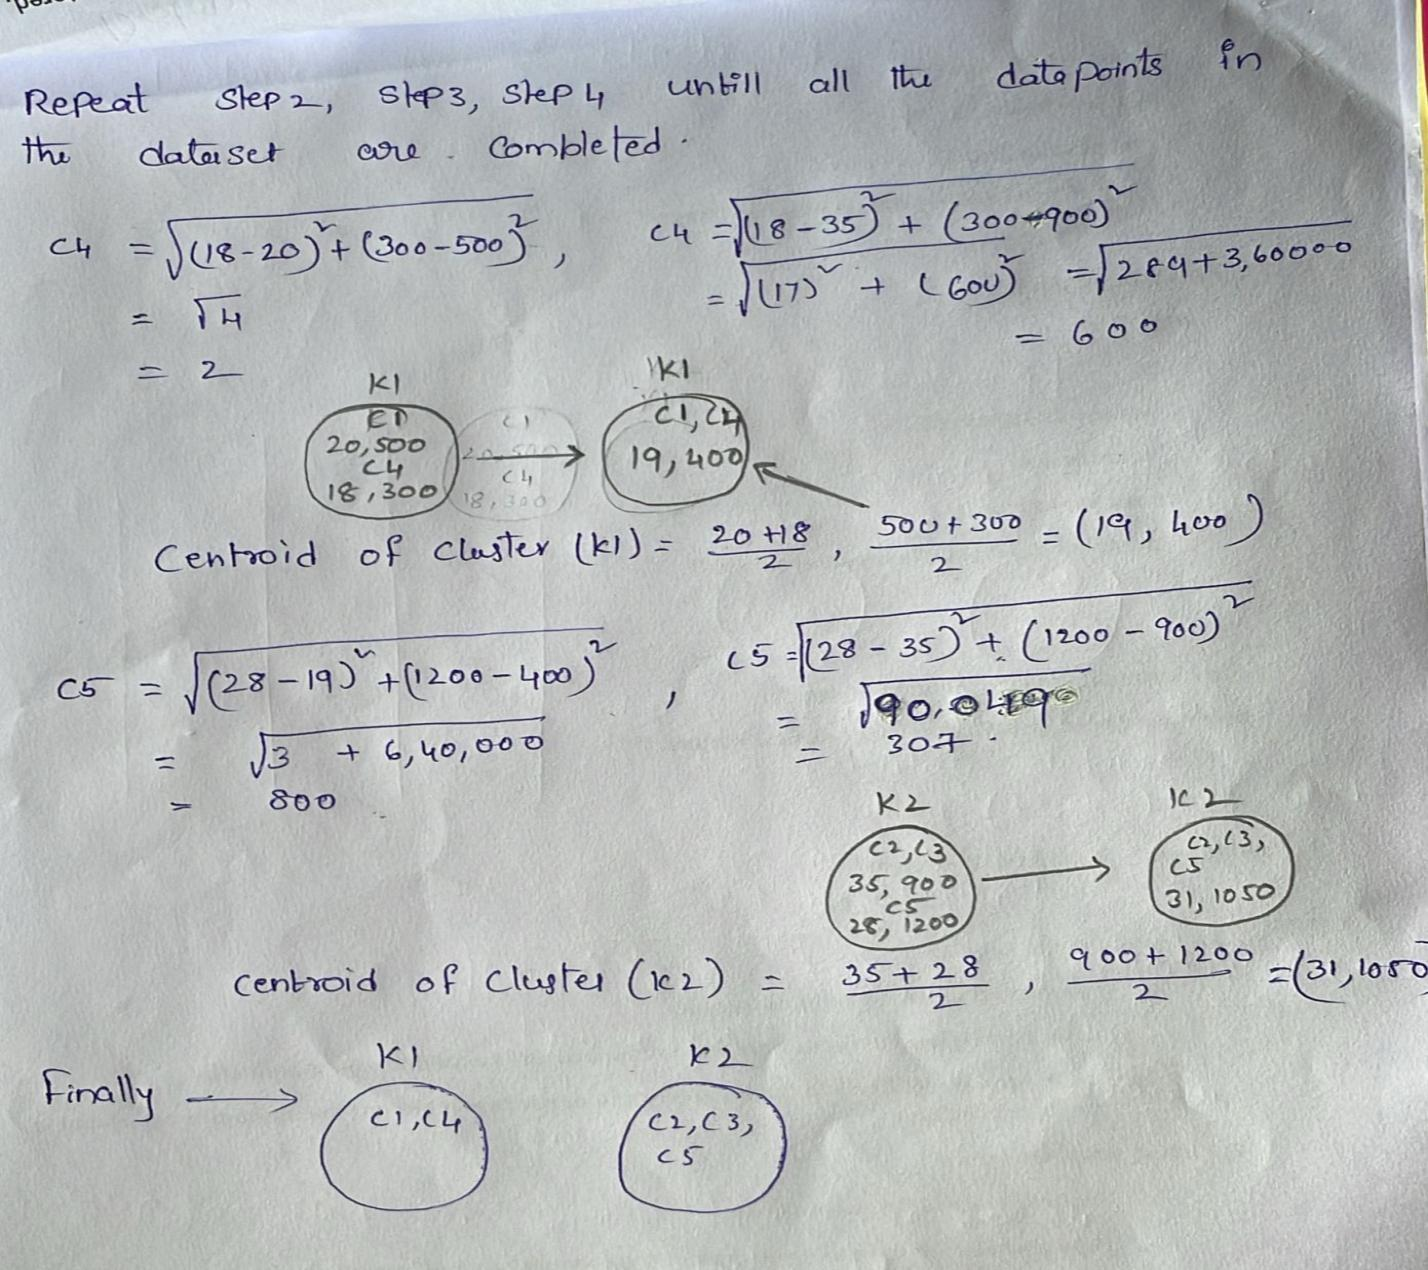 Repeat Step 2, Step 3, Step 4 untill all the data points in
the dataset are. Combleted.
C4 = √(18-20)² + (300-500)² , C4 = √(18-35)² + (300-900)²
= √4 = √(17)² + (600)² = √289+3,60000
= 2 = 600
K1 K1
C1 C1 C1, C4
20,500 20,500 19,400
C4 C4
18,300 18,300
Centroid of Cluster (K1) = 20+18/2 , 500+300/2 = (19, 400)
C5 = √(28-19)² + (1200-400)² , C5 = √(28-35)² + (1200-900)²
= √3 + 6,40,000 = √90,049
= 800 = 307.
K2 K2
C2,C3 C2,C3,
35,900 C5
C5 31,1050
28,1200
Centroid of Cluster (K2) = 35+28/2 , 900+1200/2 = (31,1050
K1 K2
Finally → C1,C4 C2,C3,
C5